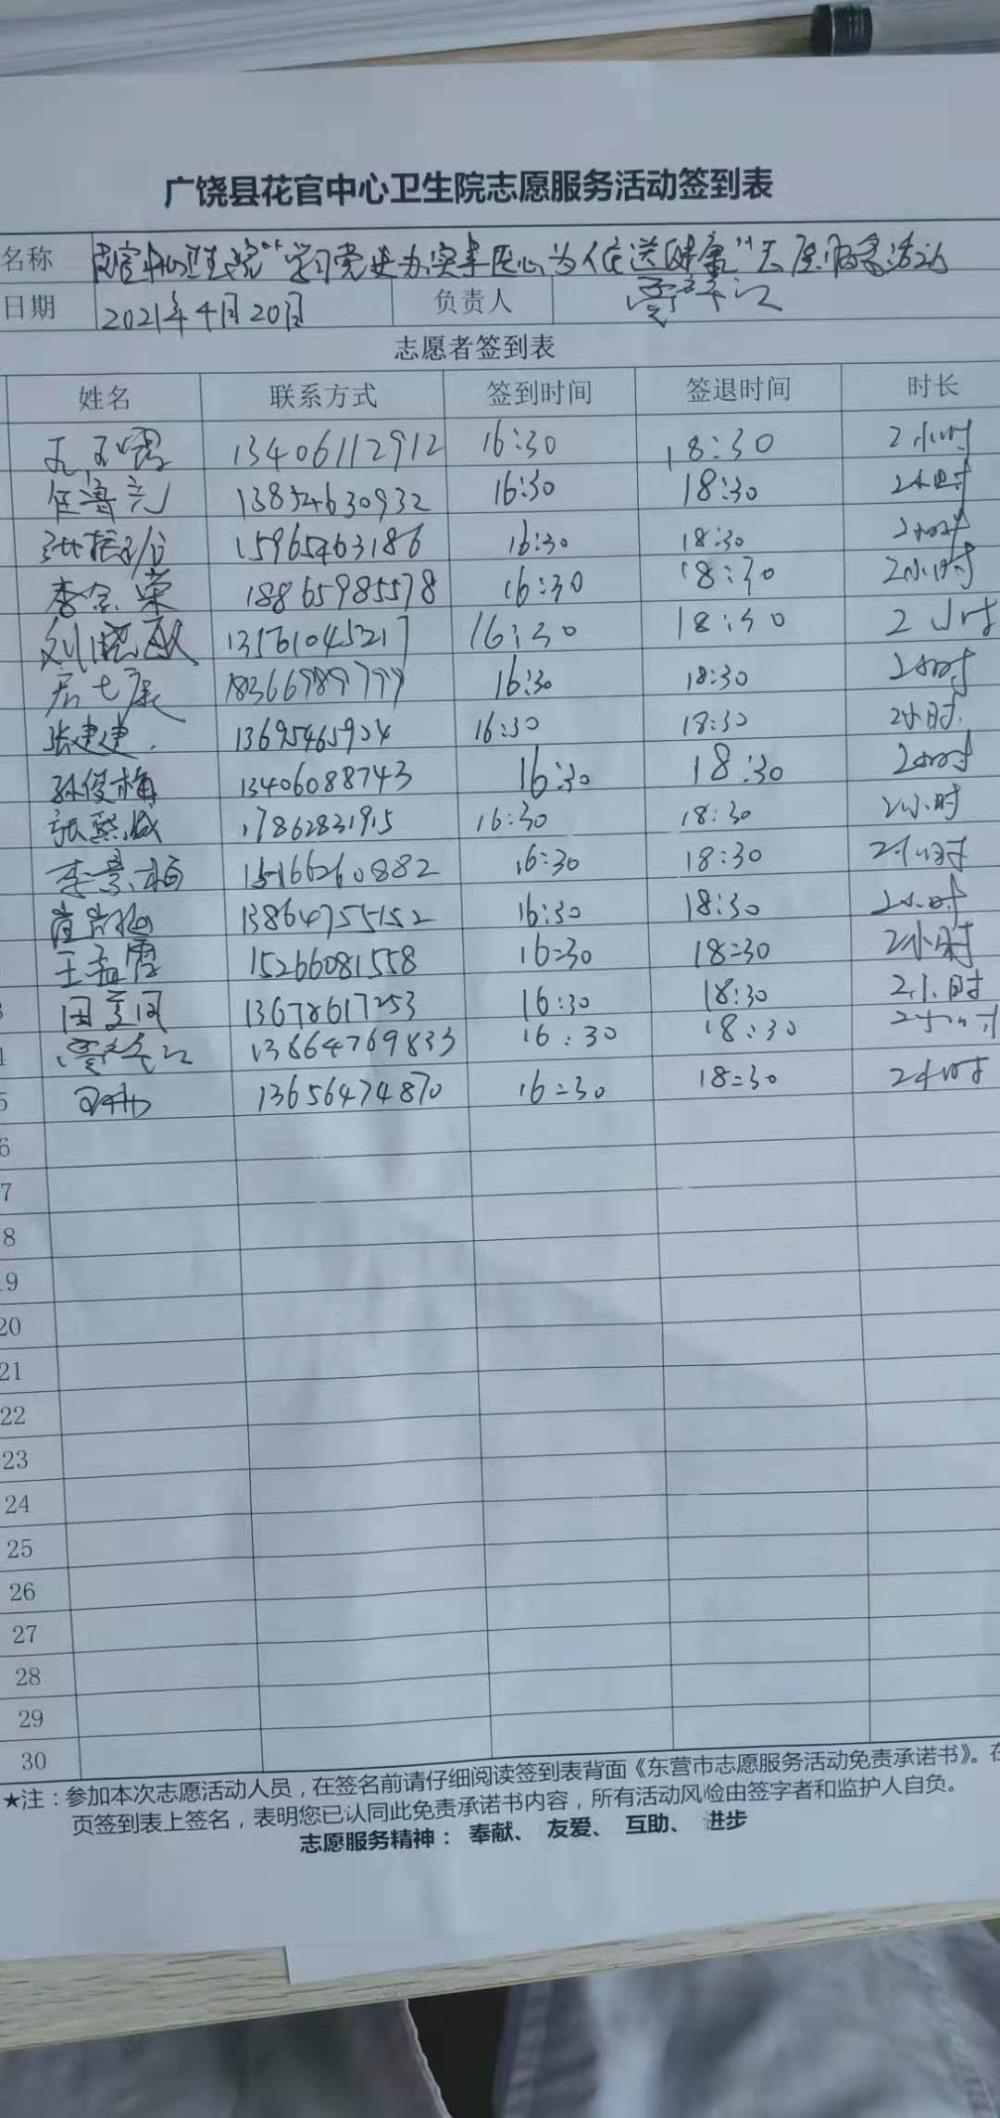 广饶县花官中心卫生院志愿服务活动签到表
名称 花官中心卫生院“学习党史办实事医心为民送健康”志愿服务活动
日期 2021年4月20日 负责人
志愿者签到表
姓名 联系方式 签到时间 签退时间 时长
13406112912 16:30 18:30 2小时
任鲁亮 13854630932 16:30 18:30 2小时
15965463186 16:30 18:30 2小时
李金荣 18865985578 16:30 18:30 2小时
刘晓敏 13561045217 16:30 18:30 2小时
18366989799 16:30 18:30 2小时
张建建 13695465924 16:30 18:30 2小时
孙俊梅 13406088743 16:30 18:30 2小时
张熙 17862831915 16:30 18:30 2小时
李景梅 15166260882 16:30 18:30 2小时
13864755152 16:30 18:30 2小时
王孟霞 15266081558 16:30 18:30 2小时
3 13678617253 16:30 18:30 2小时
4 13864769833 16:30 18:30 2小时
5 13656474870 16:30 18:30 2小时
6
7
8
19
20
21
22
23
24
25
26
27
28
29
30
★注：参加本次志愿活动人员，在签名前请仔细阅读签到表背面《东营市志愿服务活动免责承诺书》。在
页签到表上签名，表明您已认同此免责承诺书内容，所有活动风险由签字者和监护人自负。
志愿服务精神： 奉献、 友爱、 互助、 进步